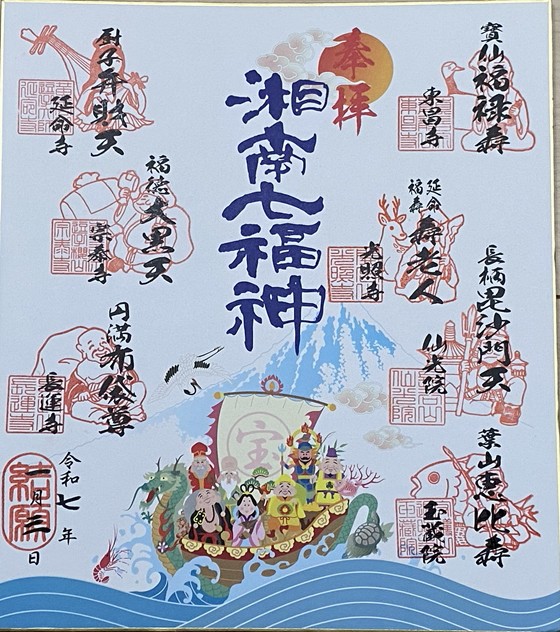 奉拝
湘南七福神
寳仙福禄壽
東昌寺
延命
福壽
壽老人
光照寺
長柄毘沙門天
仙光院
葉山恵比壽
玉蔵院
厨子弁財天
延命寺
福徳大黒天
宗泰寺
円満布袋尊
長運寺
令和七年
一月三日
結願
宝